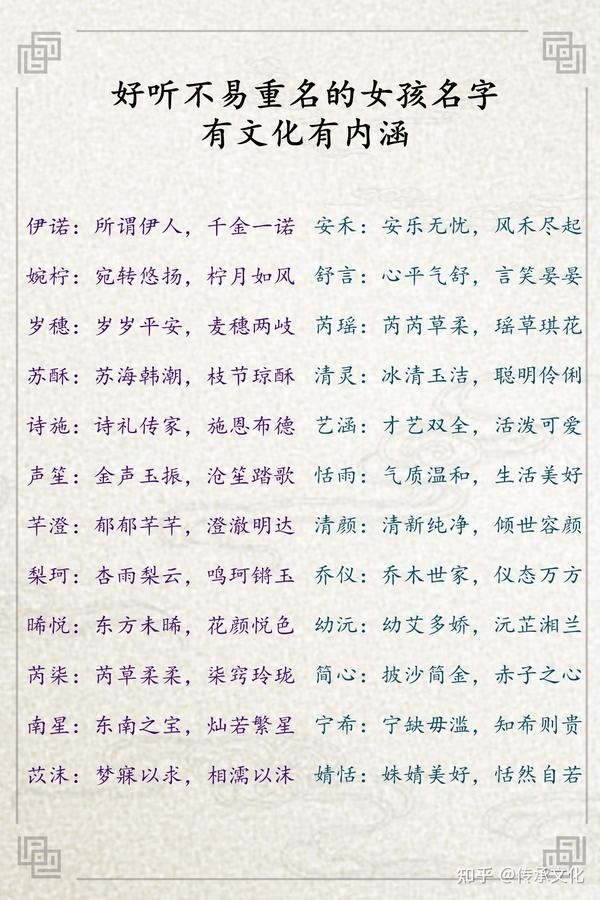 好听不易重名的女孩名字
有文化有内涵
伊诺：所谓伊人，千金一诺
婉柠：宛转悠扬，柠月如风
岁穗：岁岁平安，麦穗两岐
苏酥：苏海韩潮，枝节琼酥
诗施：诗礼传家，施恩布德
声笙：金声玉振，沧笙踏歌
芊澄：郁郁芊芊，澄澈明达
梨珂：杏雨梨云，鸣珂锵玉
晞悦：东方未晞，花颜悦色
芮柒：芮草柔柔，柒窍玲珑
南星：东南之宝，灿若繁星
苡沫：梦寐以求，相濡以沫
安禾：安乐无忧，风禾尽起
舒言：心平气舒，言笑晏晏
芮瑶：芮芮草柔，瑶草琪花
清灵：冰清玉洁，聪明伶俐
艺涵：才艺双全，活泼可爱
恬雨：气质温和，生活美好
清颜：清新纯净，倾世容颜
乔仪：乔木世家，仪态万方
幼沅：幼艾多娇，沅芷湘兰
简心：披沙简金，赤子之心
宁希：宁缺毋滥，知希则贵
婧恬：姝婧美好，恬然自若
知乎 @传承文化